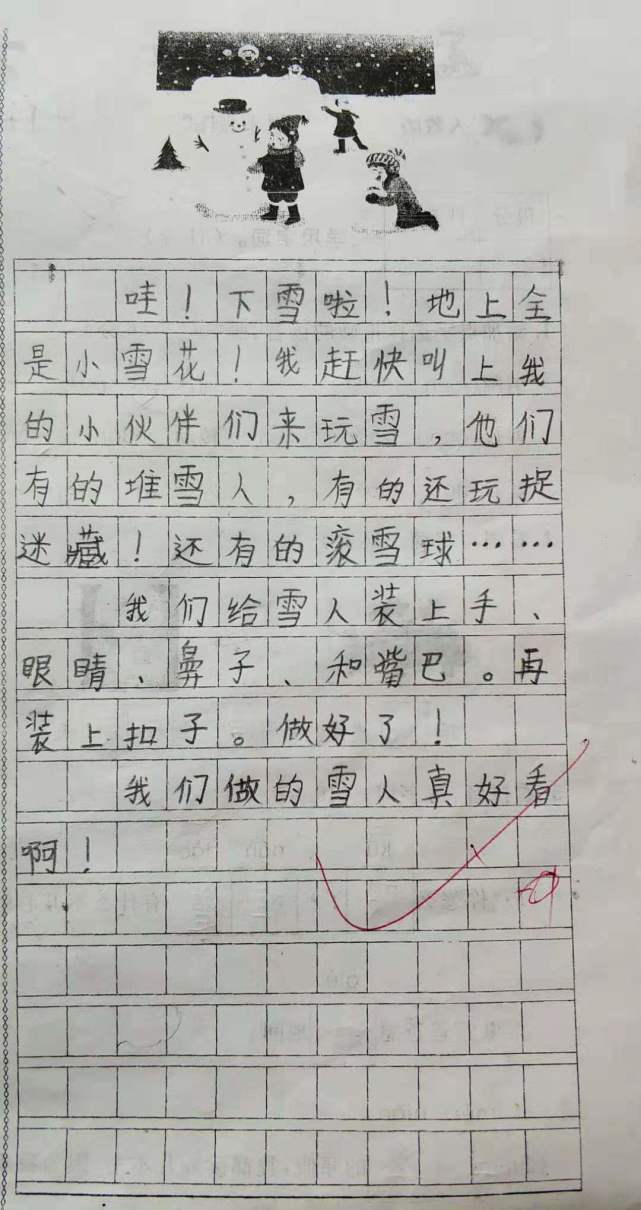 哇！下雪啦！地上全
是小雪花！我赶快叫上我
的小伙伴们来玩雪，他们
有的堆雪人，有的还玩捉
迷藏！还有的滚雪球……
我们给雪人装上手、
眼睛、鼻子、和嘴巴。再
装上扣子。做好了！
我们做的雪人真好看
啊！